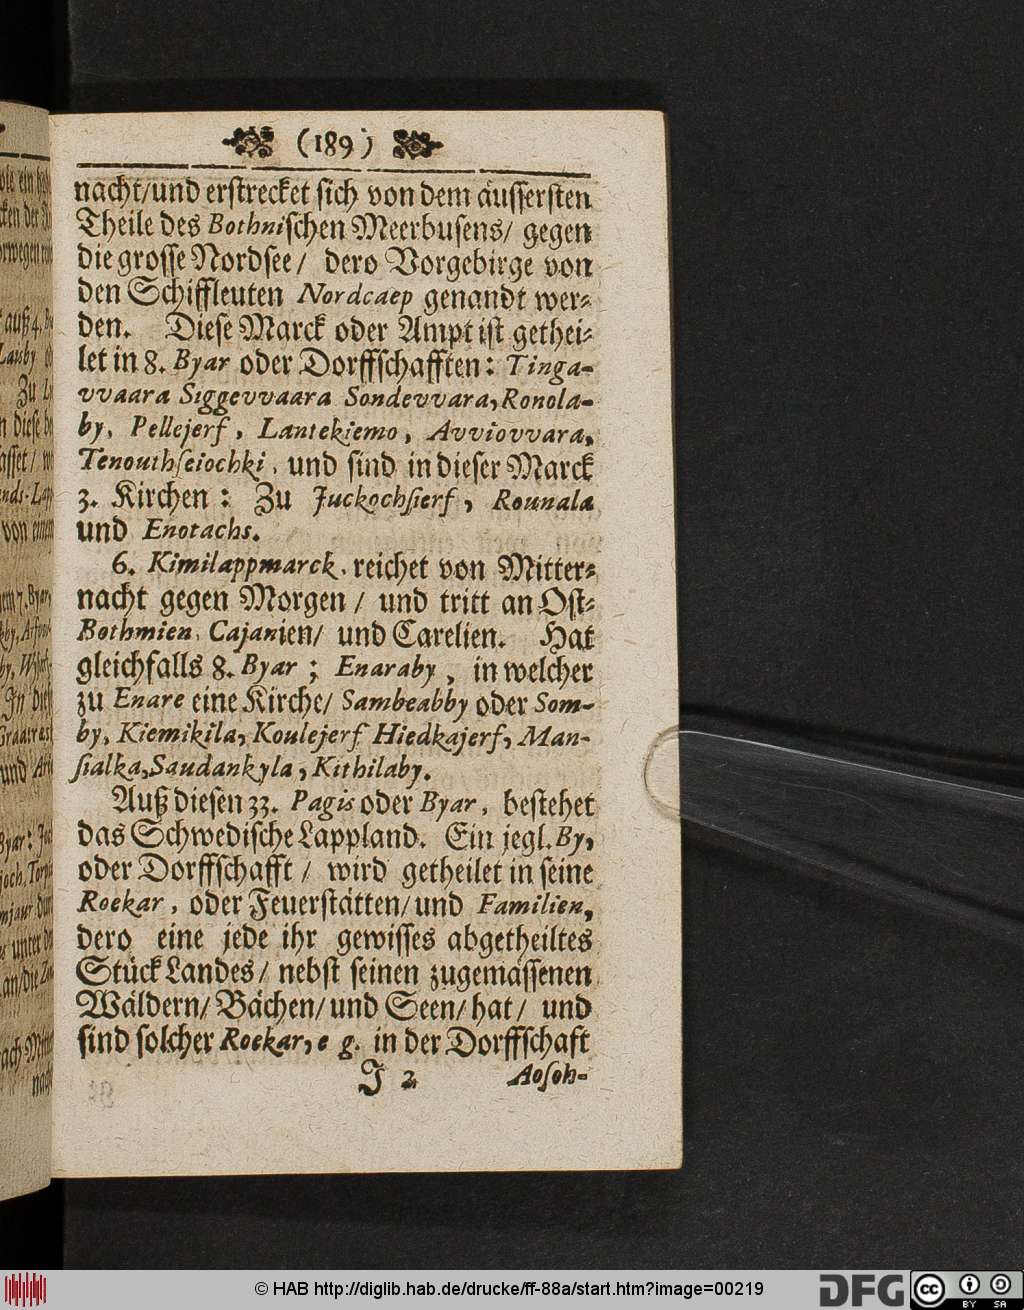 (189)
nacht/und erstrecket sich von dem äussersten
Theile des Bothnischen Meerbusens/ gegen
die grosse Nordsee/ dero Vorgebirge von
den Schiffleuten Nordcaep genandt wer-
den. Diese Marck oder Ampt ist gethei-
let in 8. Byar oder Dorffschafften: Tinga-
vvaara Siggevvaara Sondevvara, Ronola-
by, Pellejerf, Lantekiemo, Avviovvara,
Tenouthseiochki, und sind in dieser Marck
3. Kirchen: Zu Juckochsierf, Rounala
und Enotachs.
6. Kimilappmarck, reichet von Mitter-
nacht gegen Morgen/ und tritt an Ost-
Bothmien, Cajanien/ und Carelien. Hat
gleichfalls 8. Byar; Enaraby, in welcher
zu Enare eine Kirche/ Sambeabby oder Som-
by, Kiemikila, Koulejerf Hiedkajerf, Man-
sialka, Saudankyla, Kithilaby.
Auß diesen 33. Pagis oder Byar, bestehet
das Schwedische Lappland. Ein jegl. By,
oder Dorffschafft/ wird getheilet in seine
Roekar, oder Feuerstätten/und Familien,
dero eine jede ihr gewisses abgetheiltes
Stück Landes/ nebst seinen zugemässenen
Wäldern/ Bächen/und Seen/hat/ und
sind solcher Roekar, e g. in der Dorffschaft
J 2 Aosoh-
© HAB http://diglib.hab.de/drucke/ff-88a/start.htm?image=00219
DFG
cc BY SA